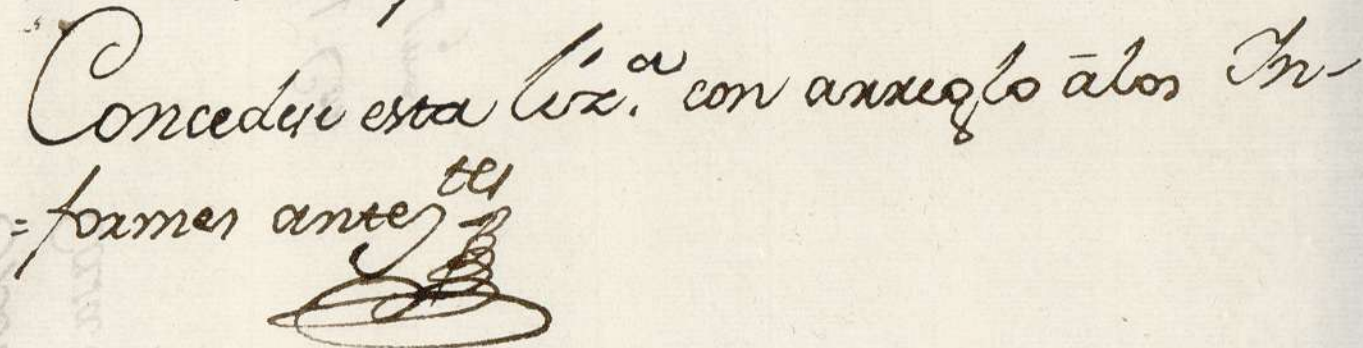 Concedese esta liz.ª con arreglo âlos In-
=formes antez.tes